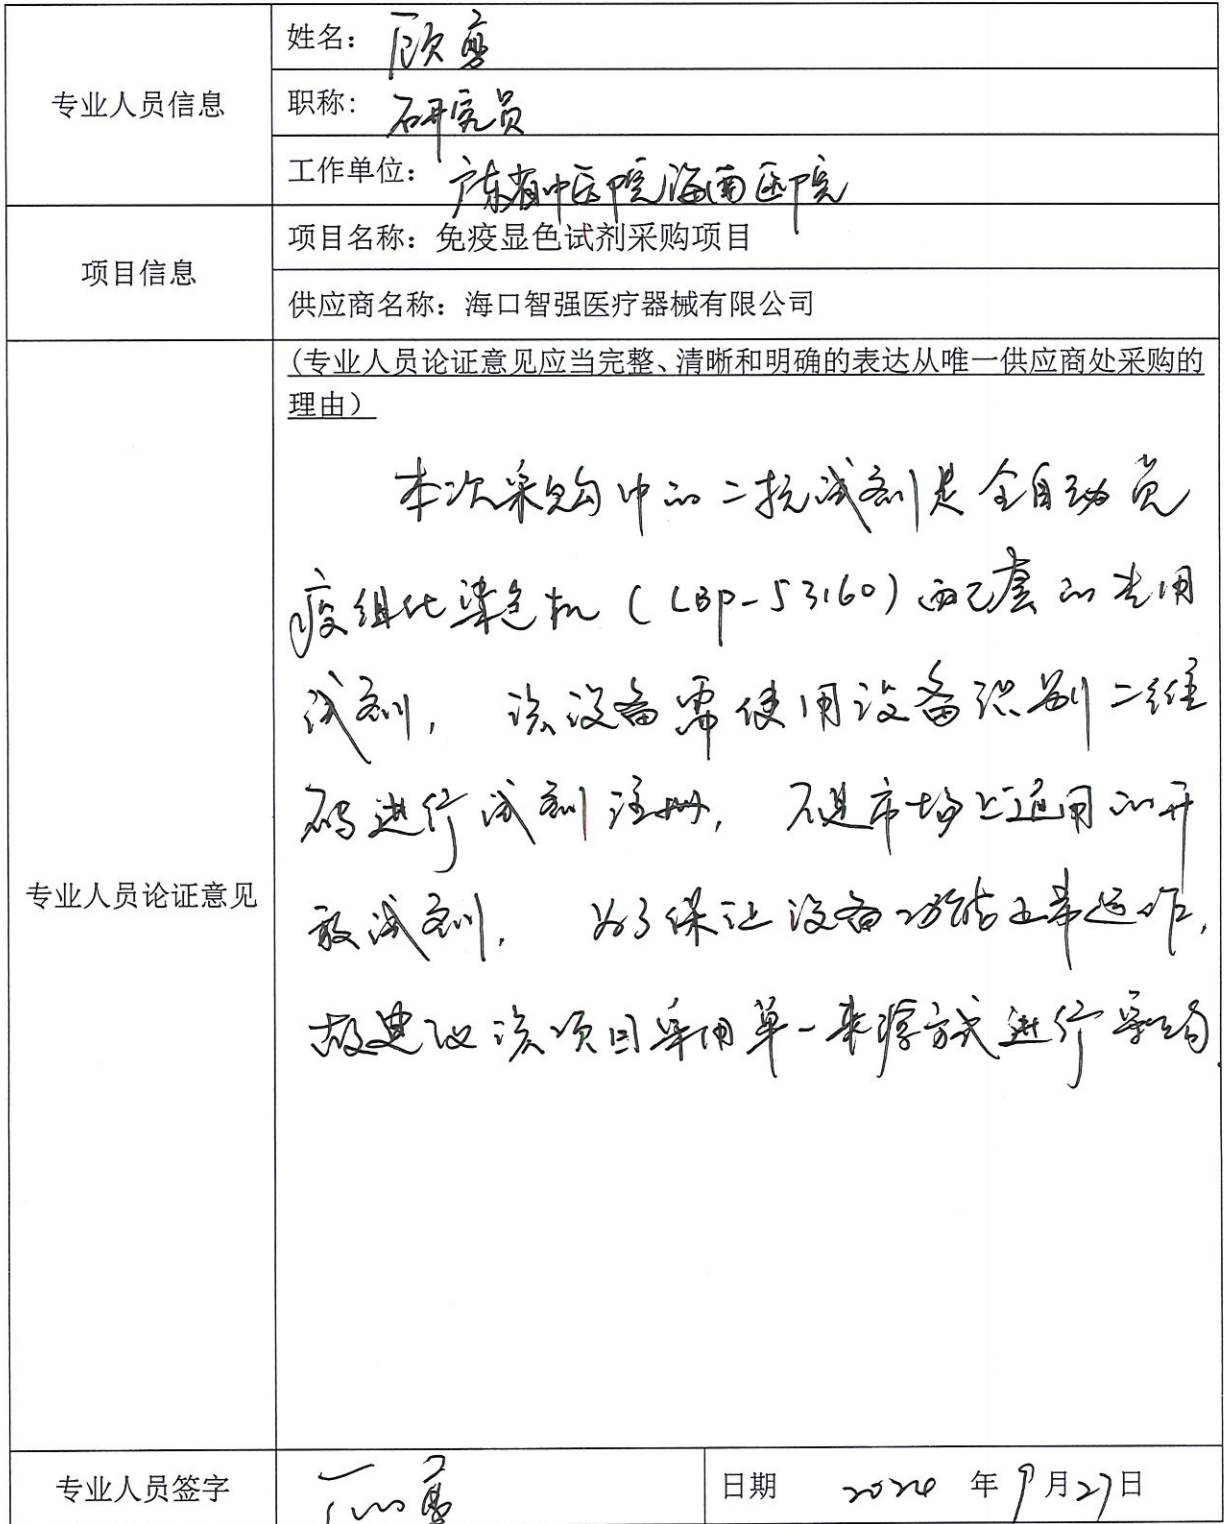 专业人员信息
姓名：顾勇
职称：研究员
工作单位：广东省中医院海南医院
项目信息
项目名称：免疫显色试剂采购项目
供应商名称：海口智强医疗器械有限公司
专业人员论证意见
(专业人员论证意见应当完整、清晰和明确的表达从唯一供应商处采购的
理由）
本次采购中的二抗试剂是全自动免
疫组化染色机（LBP-53160）配套的专用
试剂，该设备需使用设备识别二维
码进行试剂注册，不是市场上通用的开
放试剂，为了保证设备功能正常运作，
故建议该项目采用单一来源方式进行采购.
专业人员签字
日期 2024 年 9 月 27 日